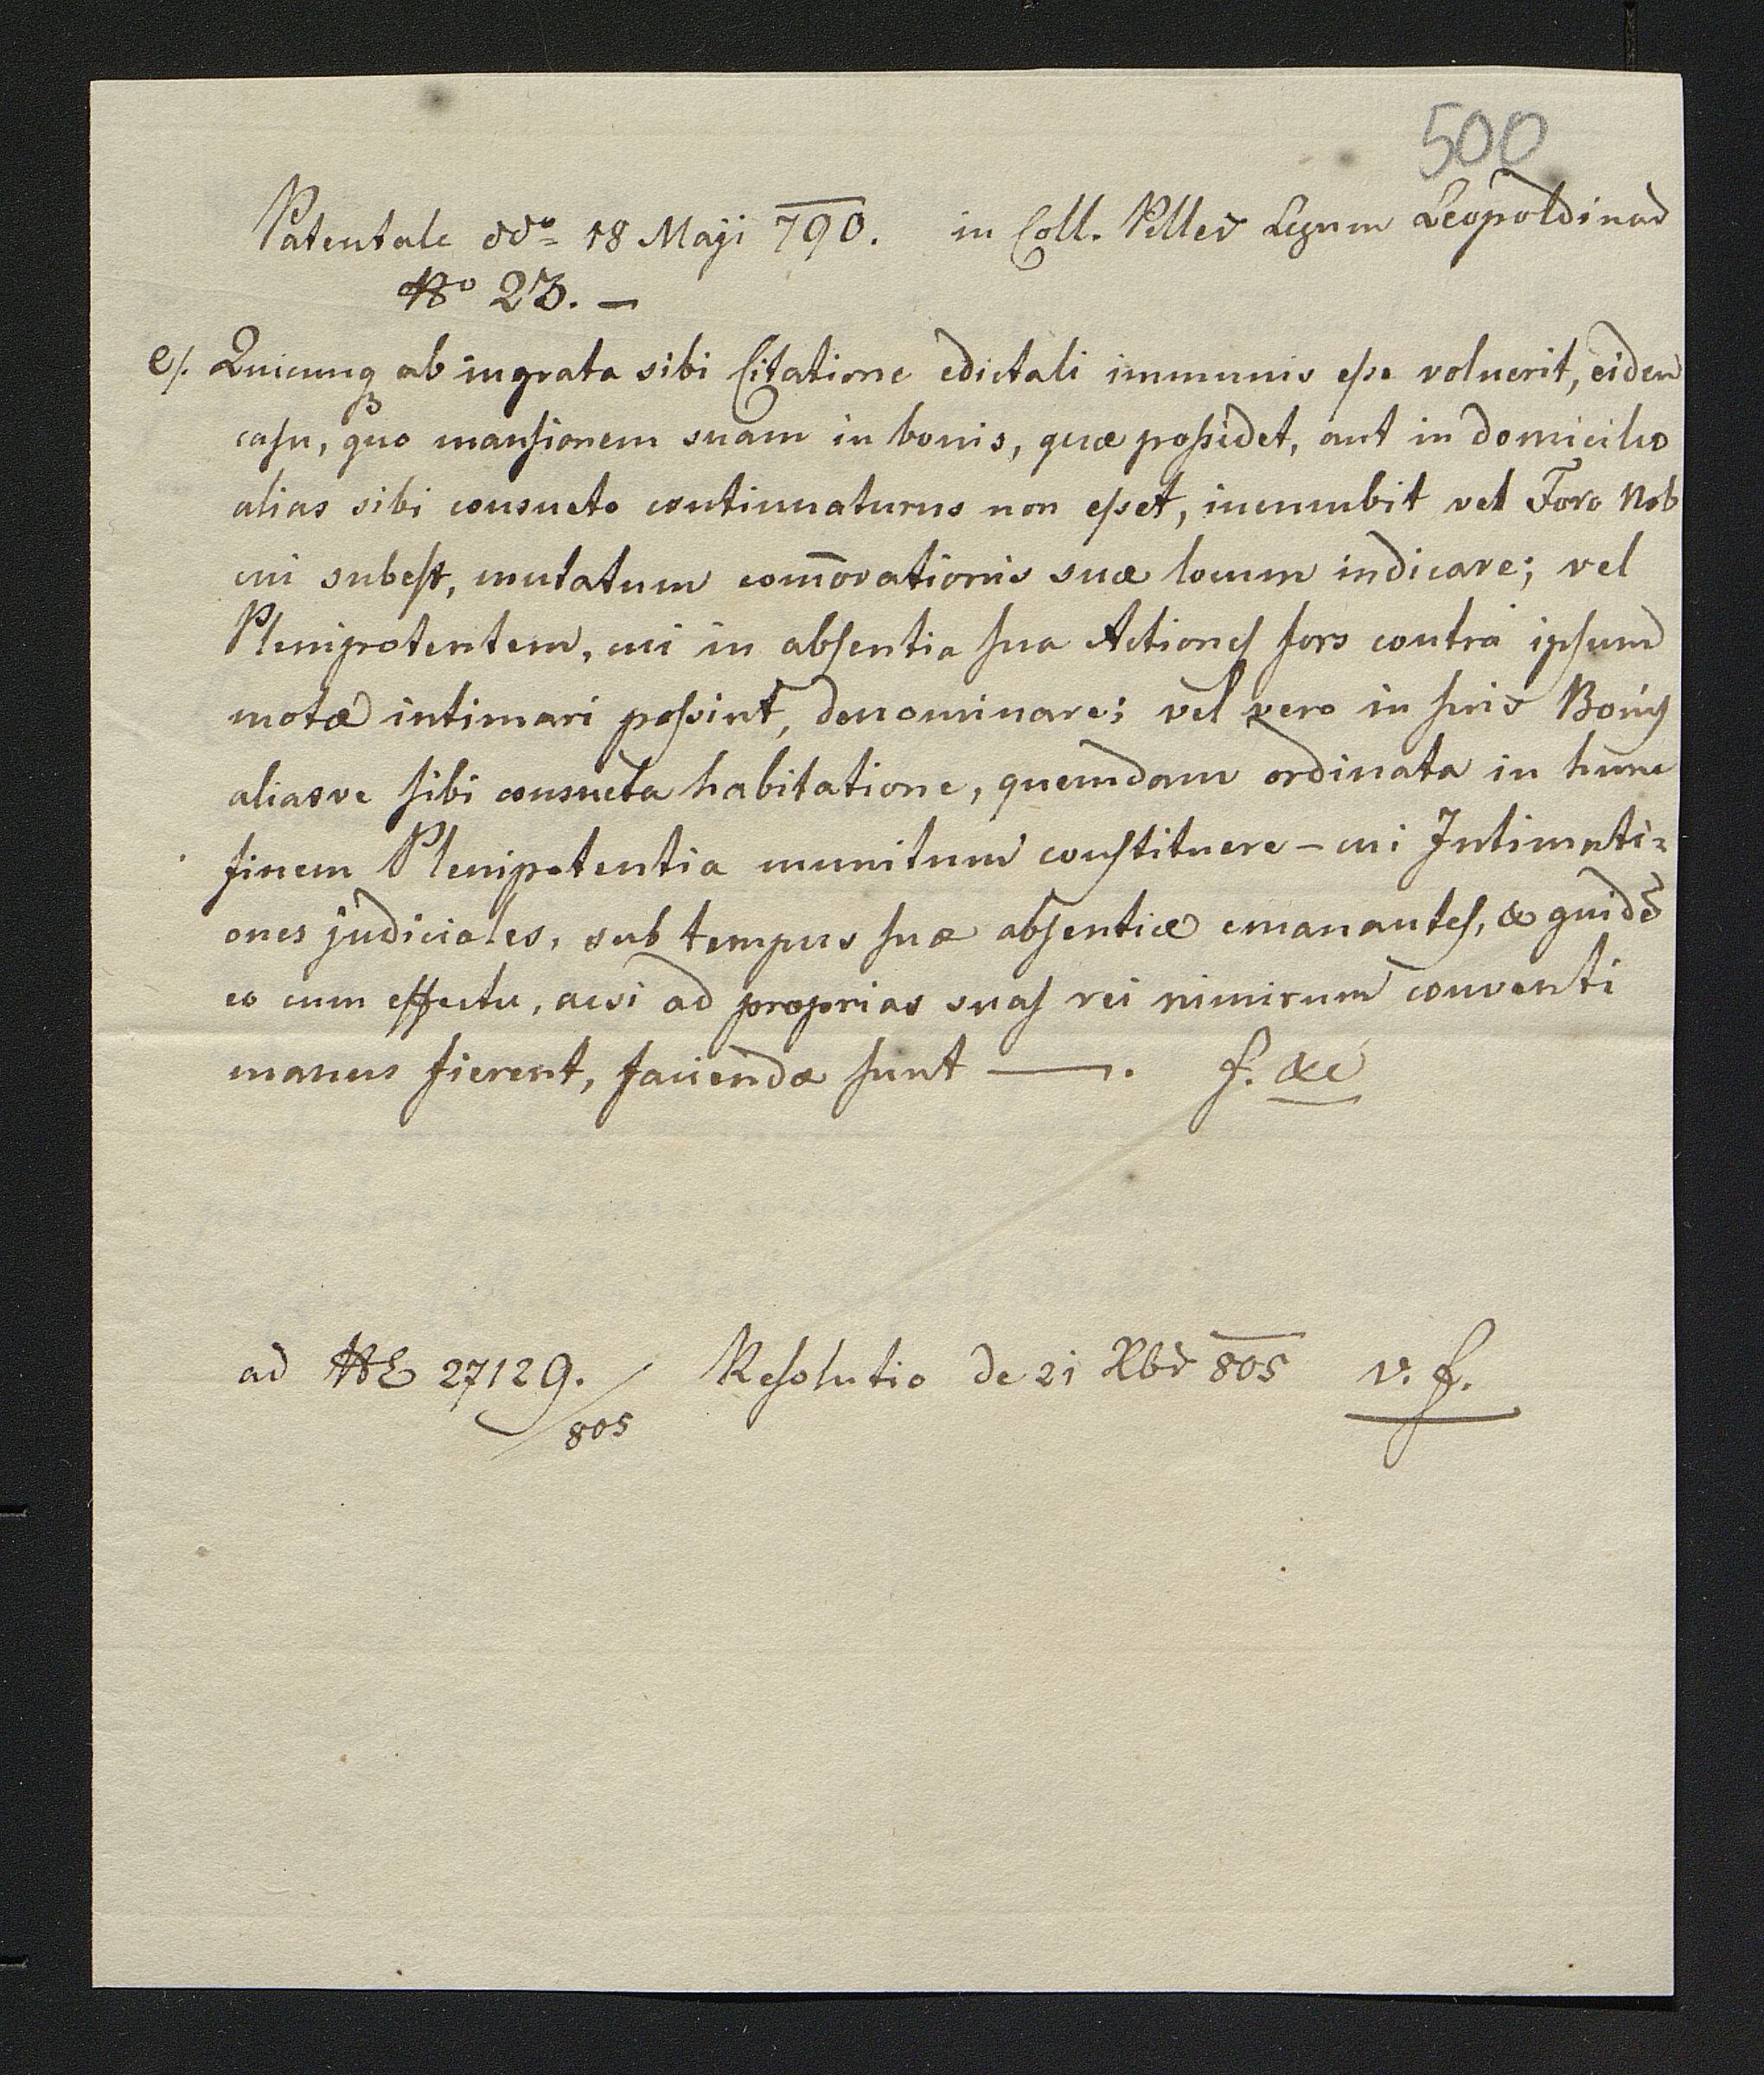 500
Patentale ddo 18 Maji 790. in Coll. Piller Legum Leopoldinar
No 23. –
e/. Quicunq ab ingrata sibi Citatione edictali immunis esse voluerit, eidem
casu, quo mansionem suam in bonis, quæ possidet, aut in domicilio
alias sibi consueto continuaturus non esset, incumbit vel Foro Nob
cui subest, mutatum com̄orationis suæ locum indicare; vel
Plenipotentem, cui in absentia sua Actiones fors contra ipsum
motæ intimari possint, denominare; vel vero in suis Bonis
aliasve sibi consueta habitatione, quemdam ordinata in hunc
finem Plenipotentia munitum constituere – cui Intimati=
ones judiciales, sub tempus suæ absentiæ emanantes, & quidē
eo cum effectu, acsi ad proprias suas rei nimirum conventi
manus fierent, faciendæ sunt —. f. &c
ad NE 27129./805 Resolutio de 21 Xbr 805 v. f.